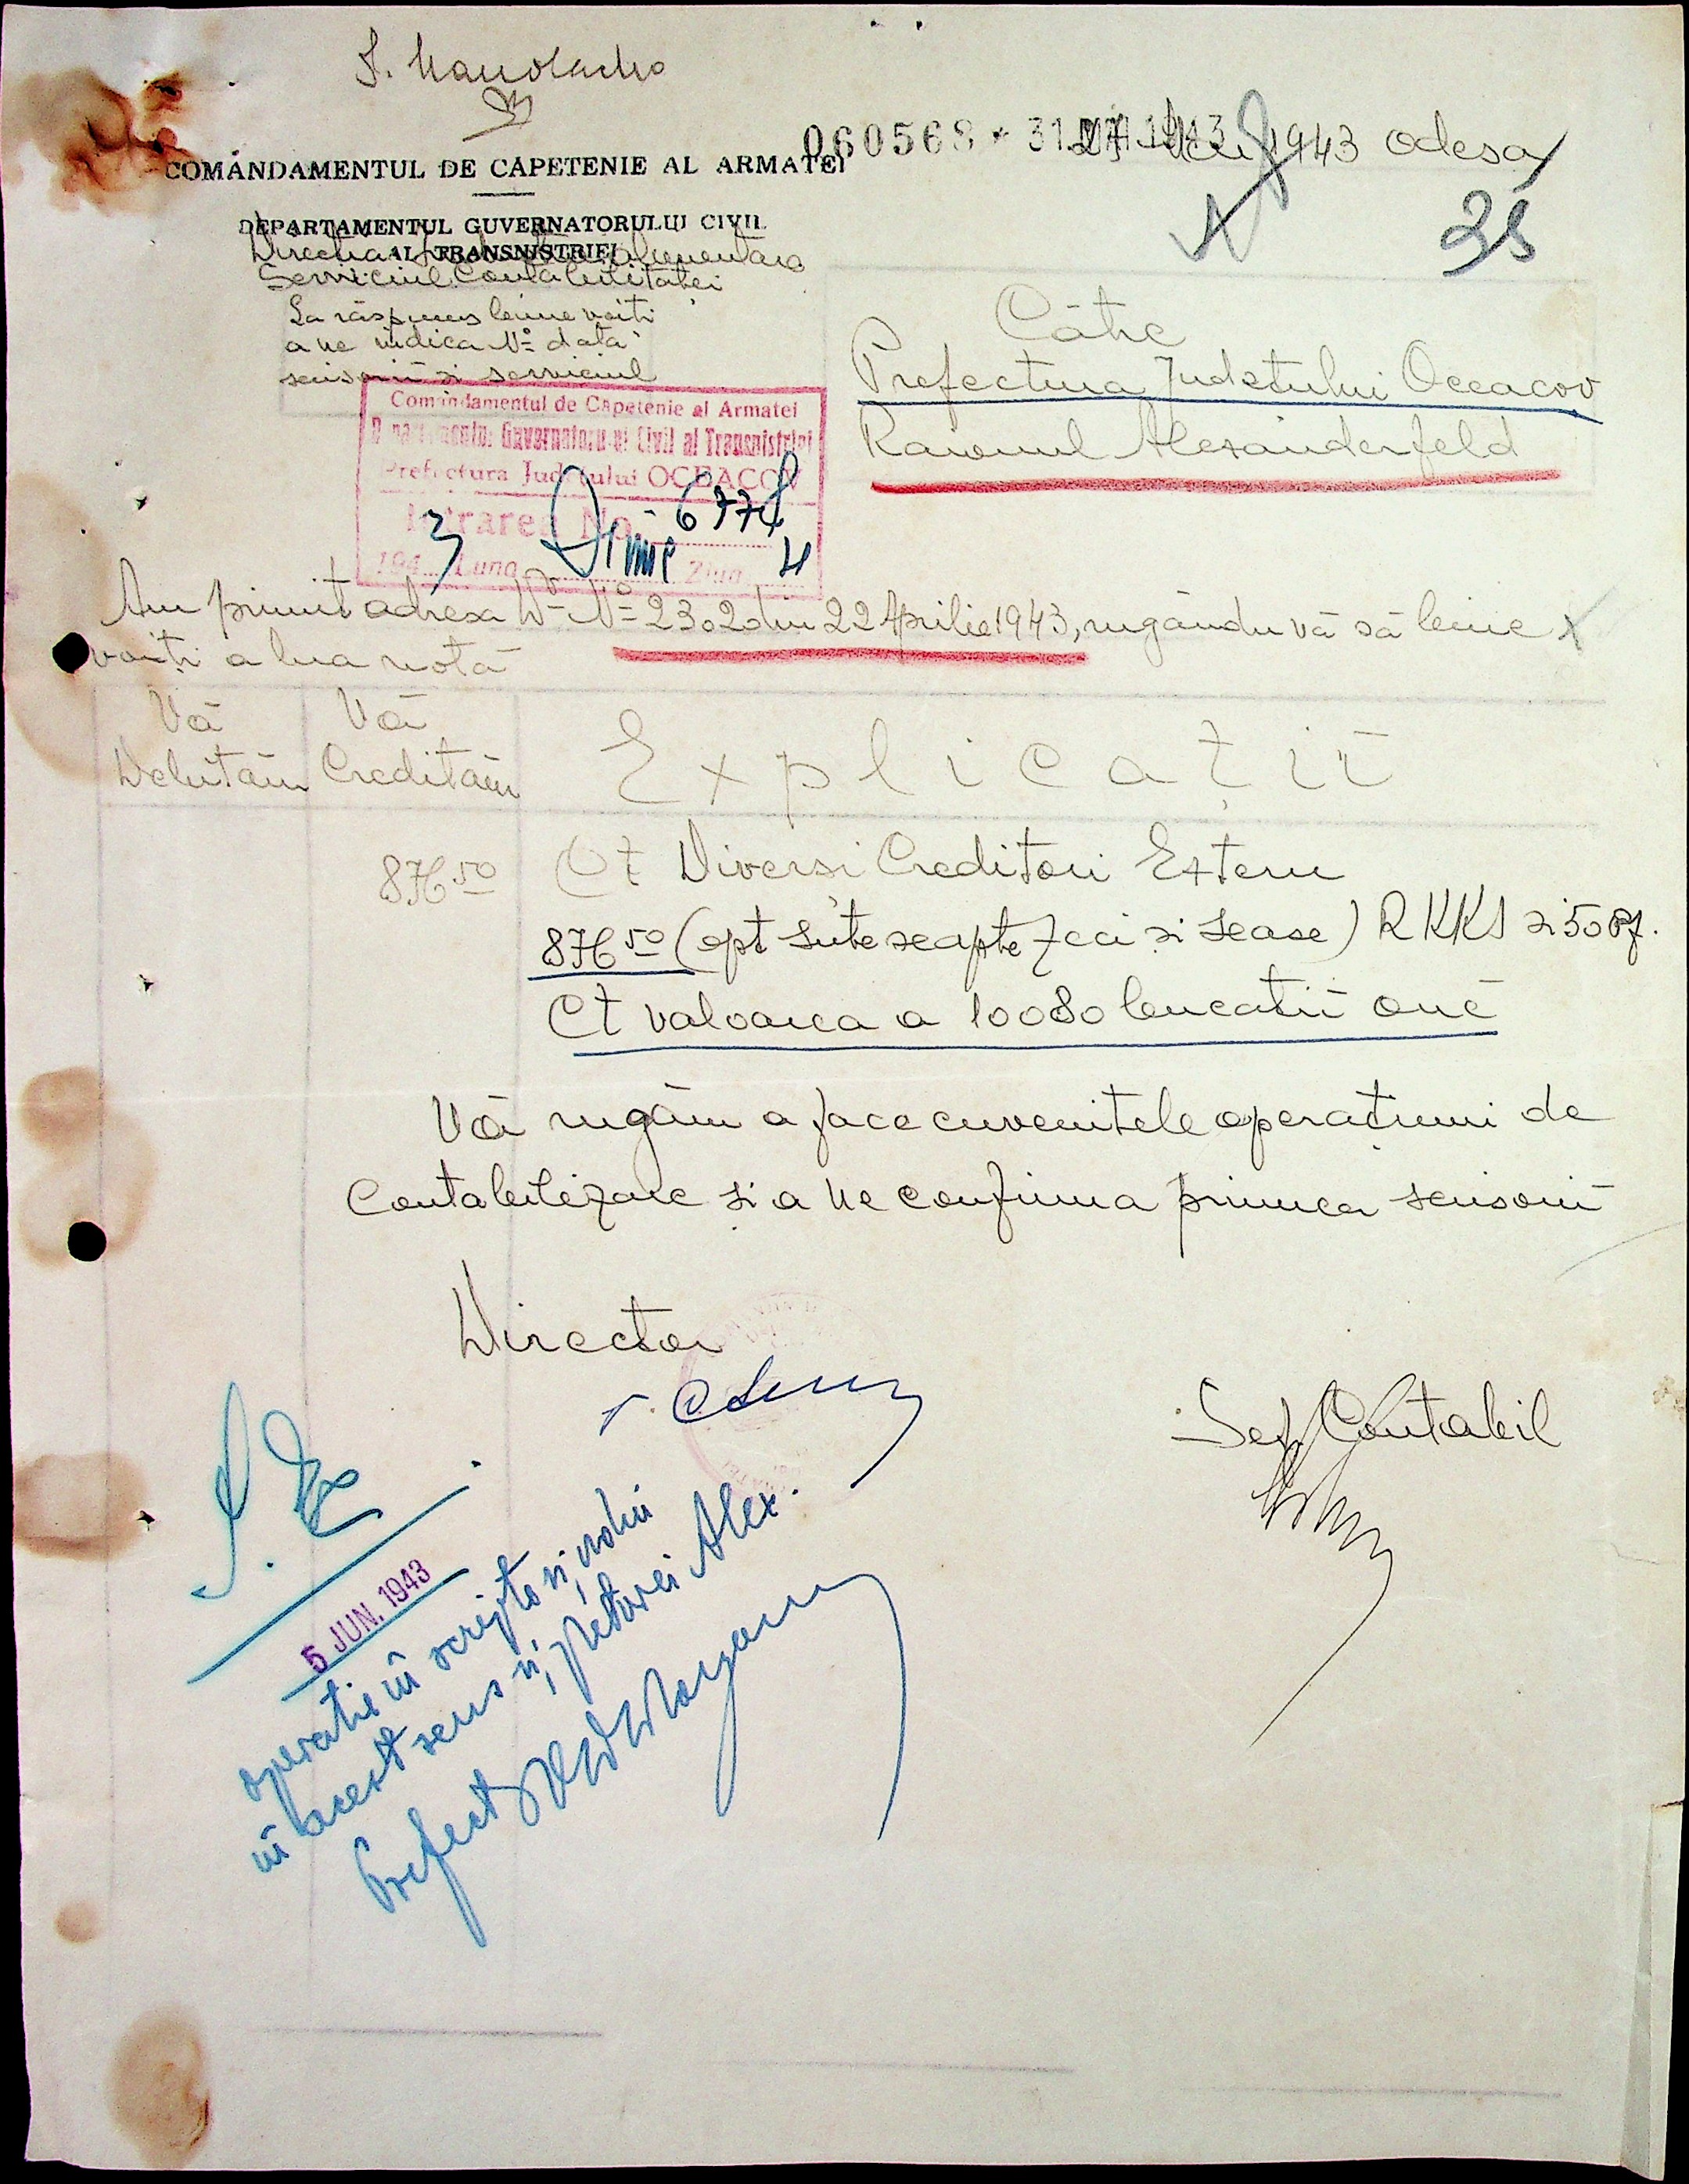 S. Manolache
060568 * 31.MAI.1943
27 Mai 1943 Odesa
COMANDAMENTUL DE CAPETENIE AL ARMATEI
DEPARTAMENTUL GUVERNATORULUI CIVIL
AL TRANSNISTRIEI
Directia Alimentara
Serviciul Contabilitatei
La răspuns bine voiti
a ne indica No data
scisorii si serviciul
35
Către
Prefectura Judetului Oceacov
Raionul Alexanderfeld
Comandamentul de Căpetenie al Armatei
Departamentul Guvernatorului Civil al Transnistriei
Prefectura Judetului OCEACOV
Intrarea No. 6778
194 3 Luna Iunie Ziua 4
Am primit adresa Dv No 2302 din 22 Aprilie 1943, rugându vă să bine
voiți a lua notă
Vă Debităm
Vă Credităm
Explicații
876 50
Ct Diversi Creditori Externi
876 50 (opt sute șeapte zeci si sease) RKKS si 50 Pf.
Ct valoarea a 10080 bucatii ouĕ
Vă rugăm a face cuvenitele operațiuni de
Contabilizare și a ne confirma primirea scrisorii
Director
Sef Contabil
S. Ex
5 JUN. 1943
operatie în scripte si,
în acest sens si, preturei Alex.
Prefect